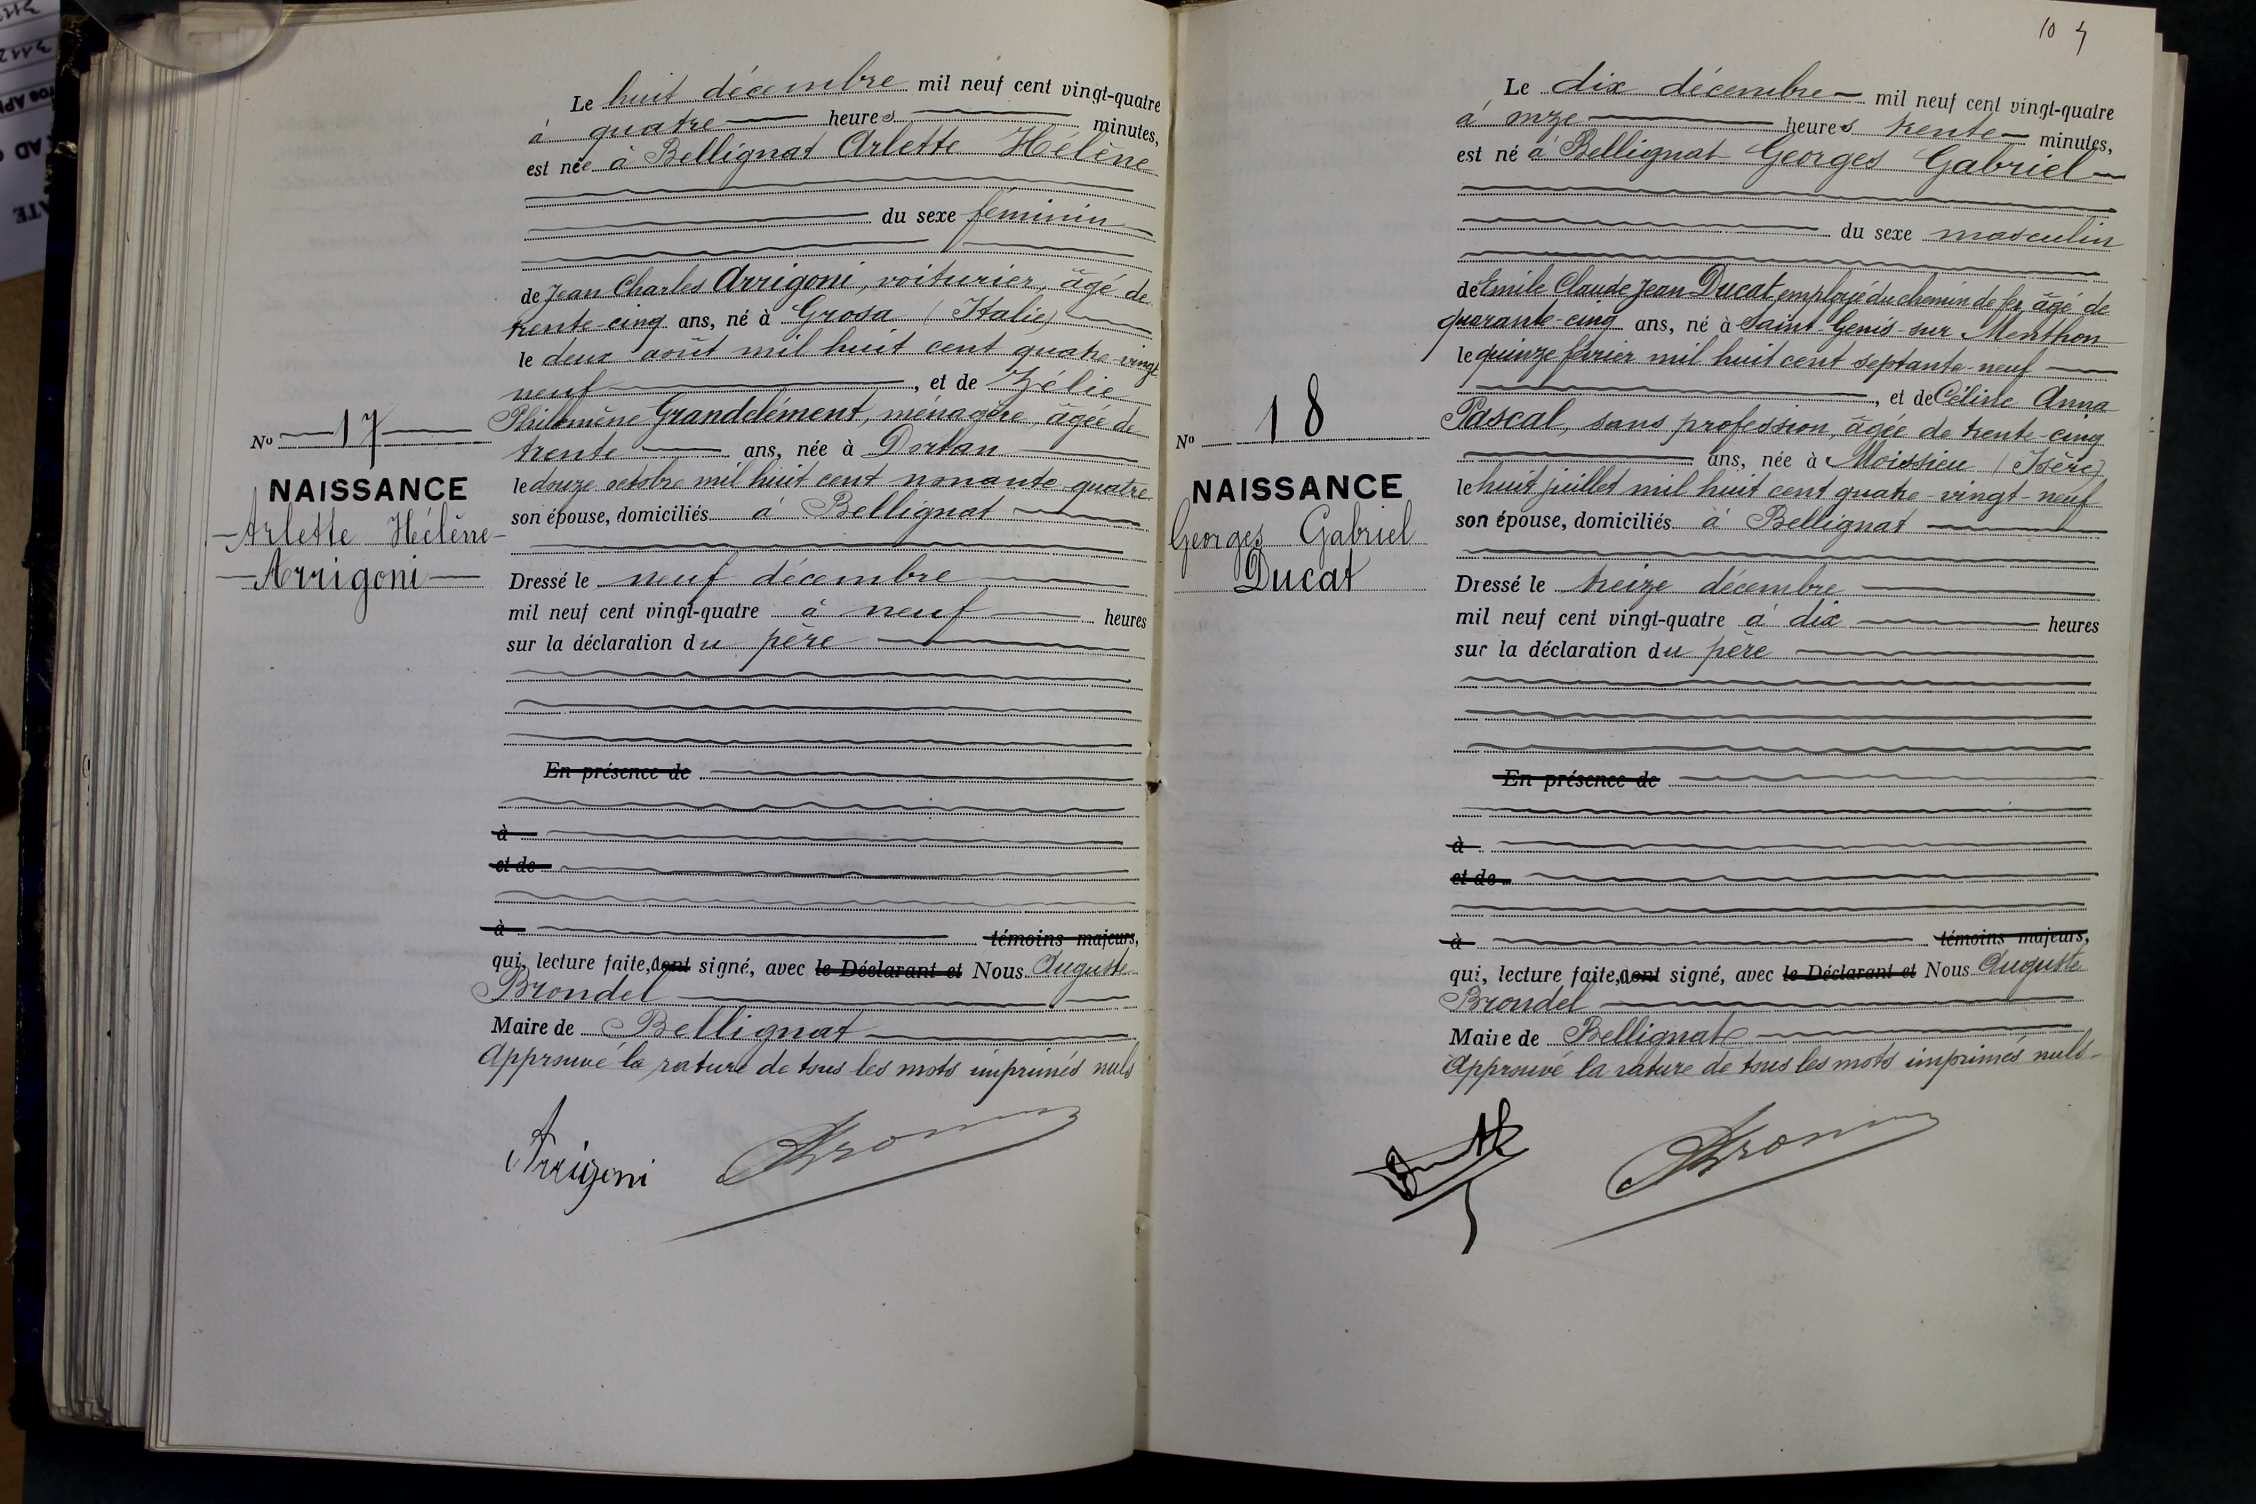 Le huit décembre mil neuf cent vingt-quatre
à quatre heures minutes,
est née à Bellignat Arlette Hélène
du sexe féminin
de Jean Charles Arrigoni, voiturier, âgé de
trente-cinq ans, né à Grosa (Italie)
le deux août mil huit cent quatre-vingt
neuf, et de Zélie
Philomène Grandclément, ménagère, âgée de
trente ans, née à Dortan
le douze octobre mil huit cent nonante-quatre
son épouse, domiciliés à Bellignat
No 17
NAISSANCE
Arlette Hélène
Arrigoni
Dressé le neuf décembre
mil neuf cent vingt-quatre à neuf heures
sur la déclaration du père
En présence de
à
et de
à témoins majeurs,
qui, lecture faite, ont signé, avec le Déclarant et Nous Auguste
Brondel
Maire de Bellignat
Approuvé la rature de tous les mots imprimés nuls
Arrigoni
10
Le dix décembre mil neuf cent vingt-quatre
à onze heures trente minutes,
est né à Bellignat Georges Gabriel
du sexe masculin
de Emile Claude Jean Ducat employé du chemin de fer, âgé de
quarante-cinq ans, né à Saint-Genis-sur Menthon
le quinze février mil huit cent septante-neuf
, et de Céline Anna
Pascal, sans profession, âgée de trente-cinq
ans, née à Moissieu (Isère)
le huit juillet mil huit cent quatre-vingt-neuf
son épouse, domiciliés à Bellignat
No 18
NAISSANCE
Georges Gabriel
Ducat
Dressé le treize décembre
mil neuf cent vingt-quatre à dix heures
sur la déclaration du père
En présence de
à
et de
à témoins majeurs,
qui, lecture faite, ont signé, avec le Déclarant et Nous Auguste
Brondel
Maire de Bellignat
Approuvé la rature de tous les mots imprimés nuls